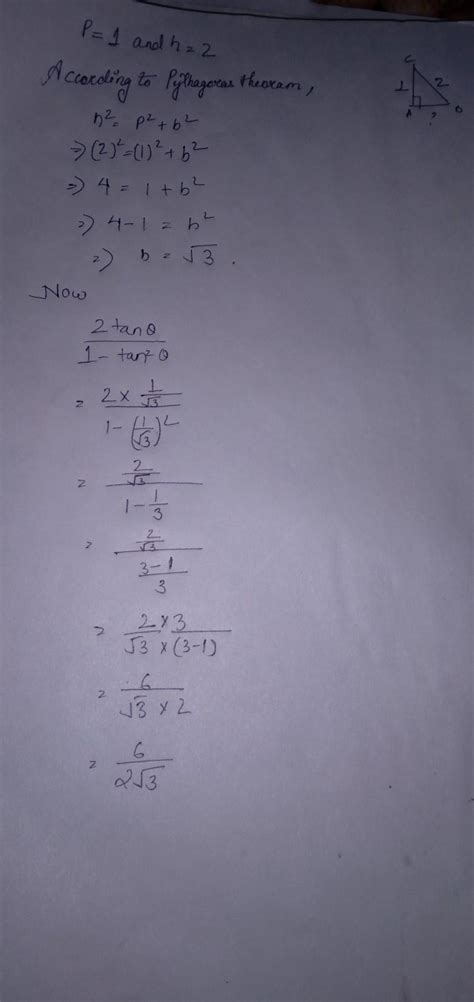 P=1 and h=2
According to Pythagoras theoram,
h²= p²+b²
⇒(2)²=(1)²+b²
⇒ 4 = 1+b²
⇒ 4-1 = b²
⇒ b = √3.
Now
2tanθ / 1-tan²θ
= 2× 1/√3 / 1-(1/√3)²
= 2/√3 / 1-1/3
= 2/√3 / 3-1/3
= 2×3 / √3×(3-1)
= 6 / √3×2
= 6 / 2√3
C
1 2
A ?